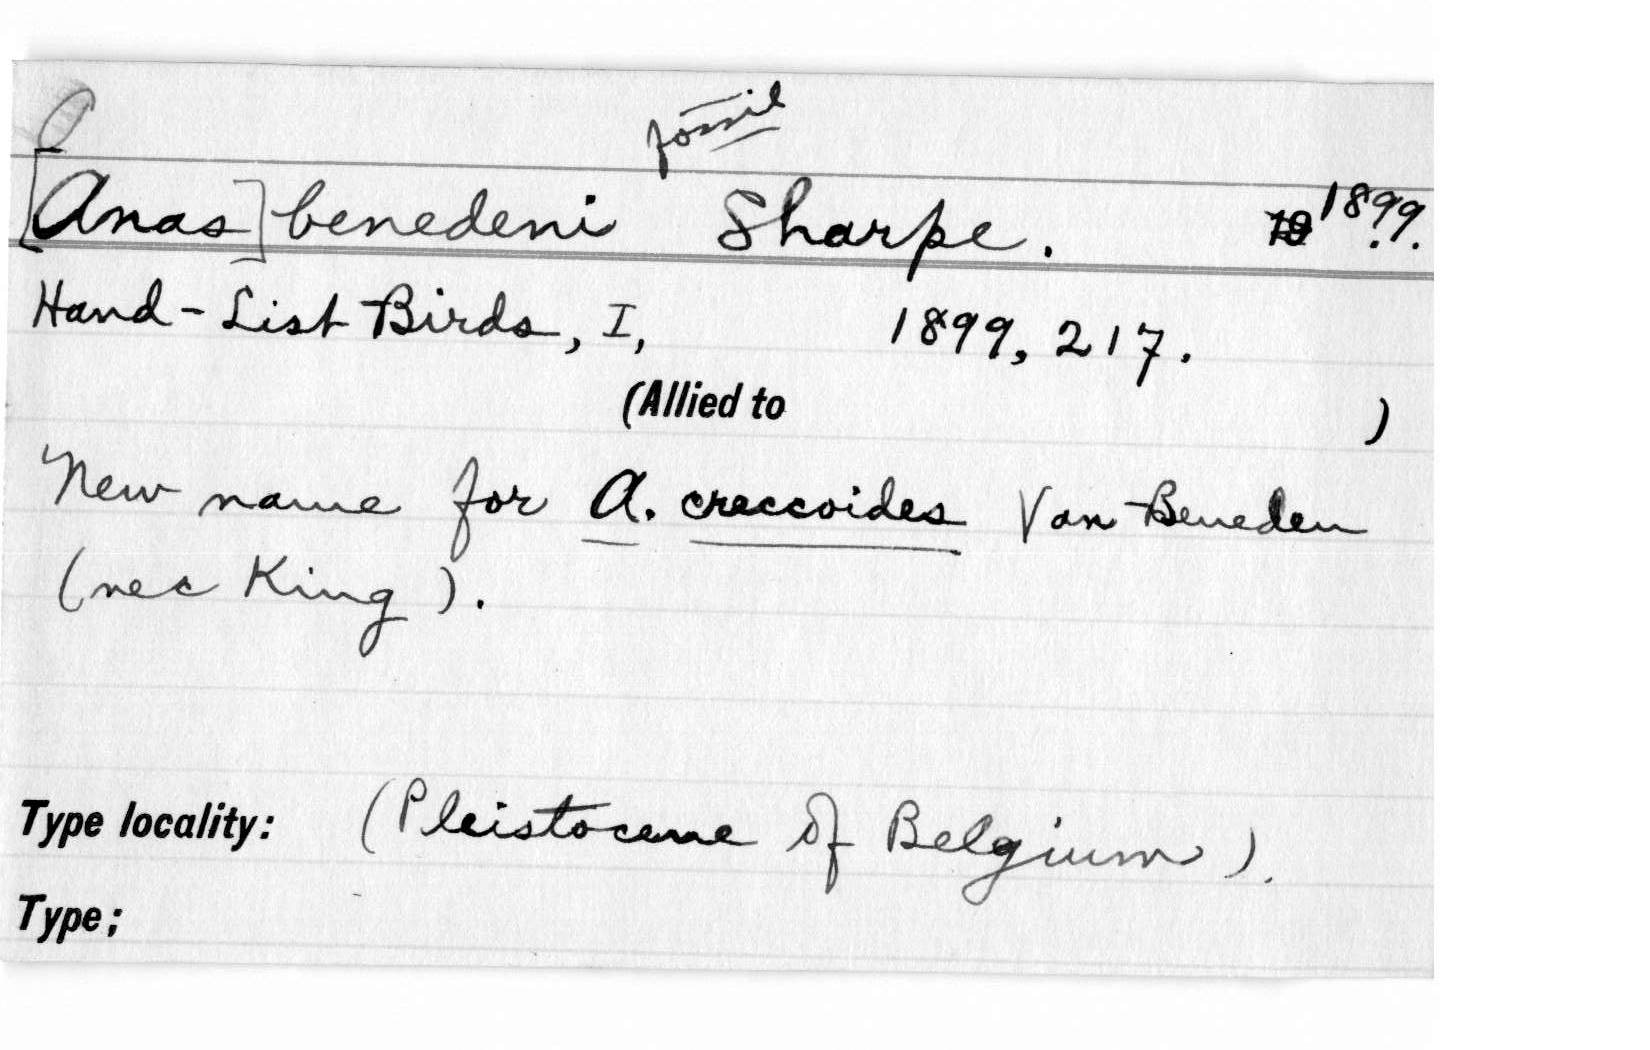 fossil
[Anas] benedeni Sharpe. 1899.
Hand-List Birds, I, 1899, 217.
(Allied to )
New name for A. creccoides Van Beneden
(nec King).
Type locality: (Pleistocene of Belgium).
Type;